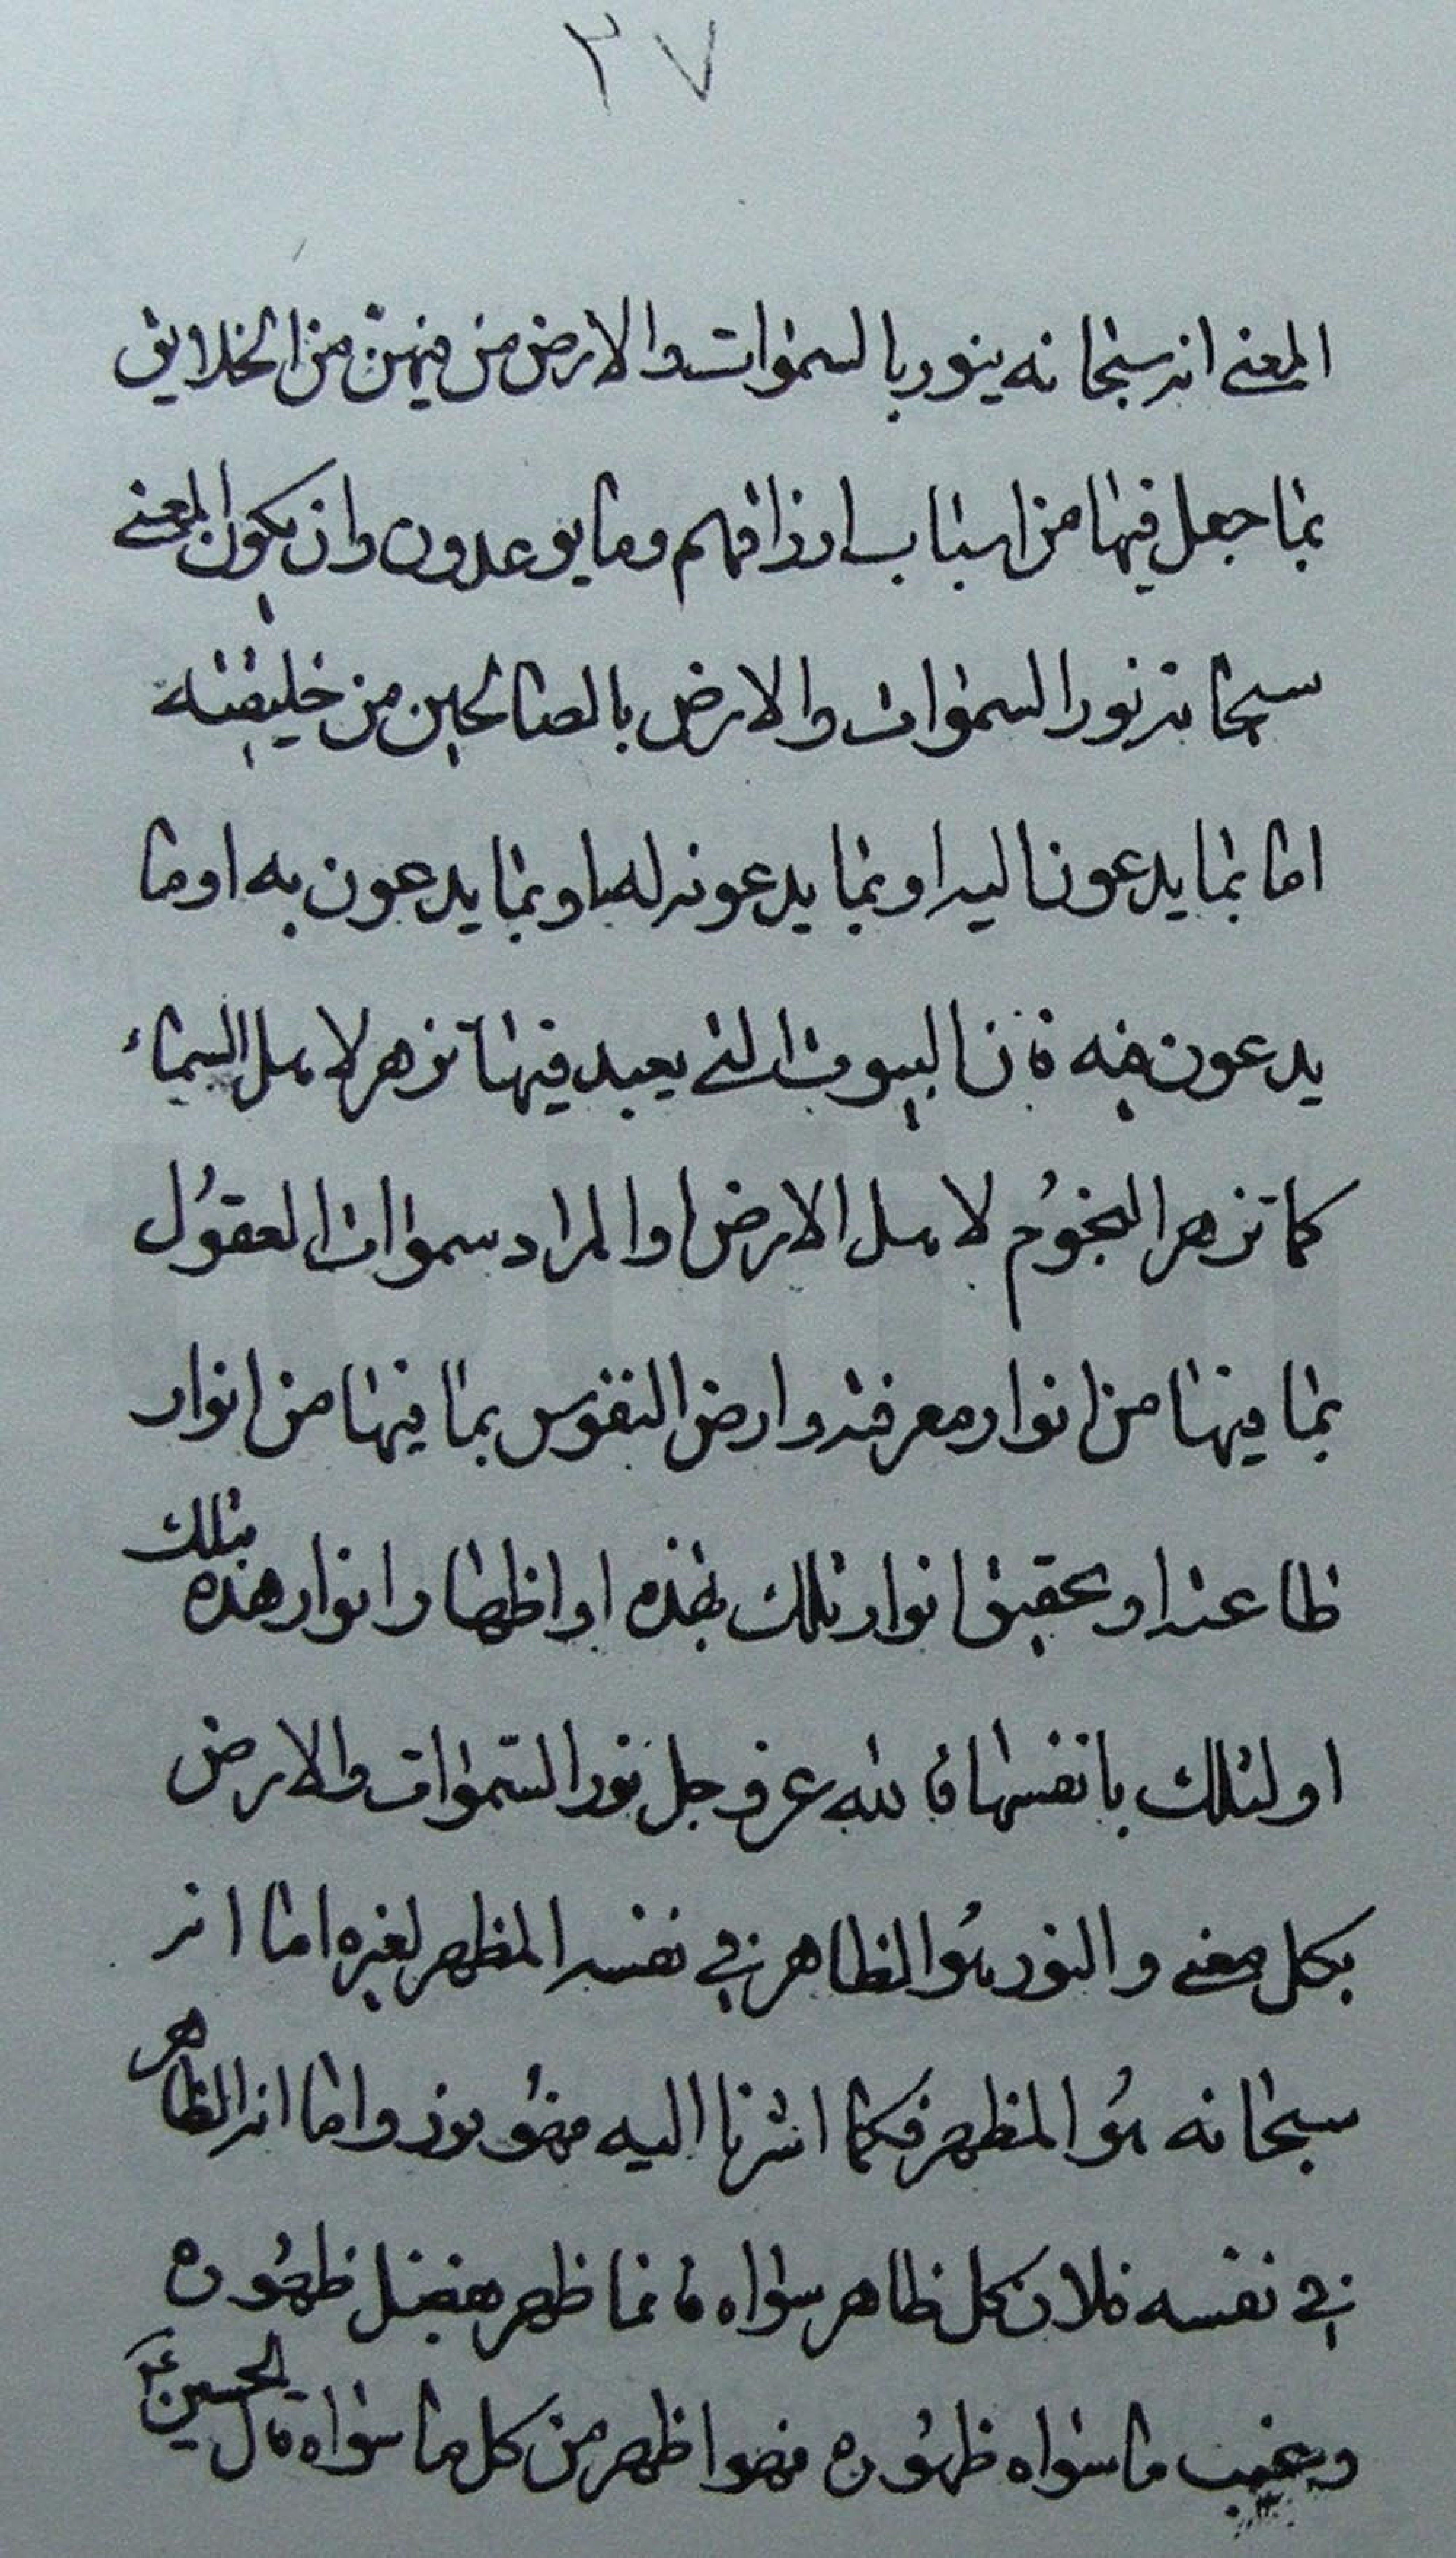 ٢٧
المعنى انه سبحانه ينور بالسموات والارض من فيهن من الخلايق
بما جعل فيها من اسباب ارزاقهم وما يوعدون وان يكون المعنى
سبحانه نور السموات والارض بالصالحين من خليقته
اما بما يدعون اليه او بما يدعونه لها او بما يدعون به او ما
يدعون فيه فان البيوت التى يعبد فيها تزهر لاهل السماء
كما تزهر النجوم لاهل الارض او المراد سموات العقول
بما فيها من انوار معرفته وارض النفوس بما فيها من انوار
طاعته او تحقيق انوار تلك بهذه او اظهار انوار هذه بتلك
او لتلك بانفسها فالله عز وجل نور السموات والارض
بكل معنى والنور هو الظاهر في نفسه المظهر لغيره اما انه
سبحانه هو المظهر فكما اشرنا اليه فهو نور واما انه الظاهر
في نفسه فلان كل ظاهر سواه فانما ظهر بفضل ظهوره
ويغيب ما سواه ظهوره فهو اظهر من كل ما سواه قال الحسين ع